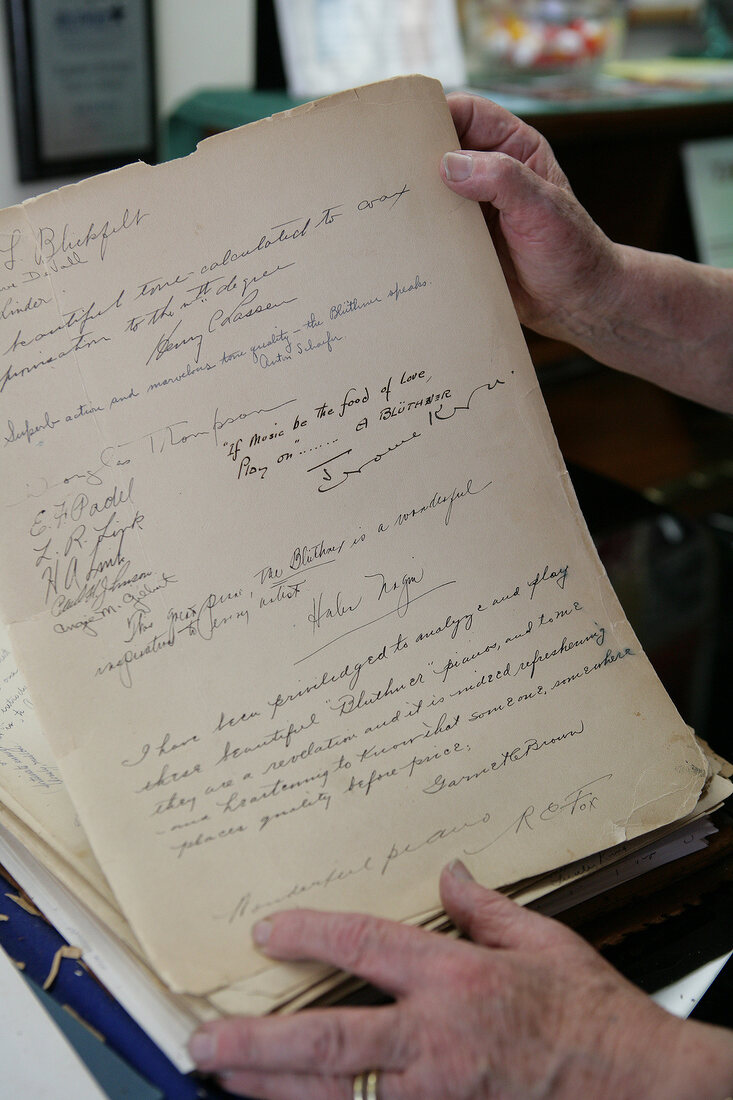 L. Blickfelt
Linder.
beautiful tone - calculated to coax
to the nth degree
Henry C Lassen
Superb action and marvelous tone quality - the Blüthner speaks.
Anton Schaefer
Douglas Thompson
"If Music be the food of Love,
Play on"....... A BLÜTHNER
Jerome Kern.
E. F. Padel
L. R. Link
H A Link
Paul H Johnson
M. Gilbert
The Blüthner is a wonderful
to every artist
I have been priviledged to analyze and play
these beautiful "Bluthner" pianos, and to me
they are a revelation and it is indeed refreshening
and heartening to know that someone, somewhere
places quality before price.
Garnet C Brown
Wonderful piano R C Fox